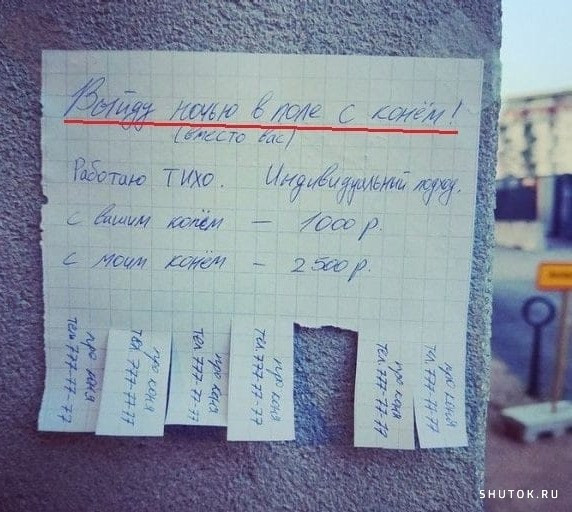 Выйду ночью в поле с конём!
(вместо вас)
Работаю ТИХО. Индивидуальный подход.
с вашим конём – 1000 р.
с моим конём – 2500 р.
про коня
тел. 777-77-77
про коня
тел. 777-77-77
про коня
тел. 777-77-77
про коня
тел. 777-77-77
про коня
тел. 777-77-77
про коня
тел. 777-77-77
SHUTOK.RU